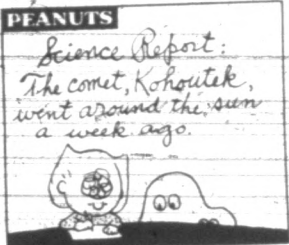 PEANUTS
Science Report:
The comet, Kohoutek,
went around the sun
a week ago.